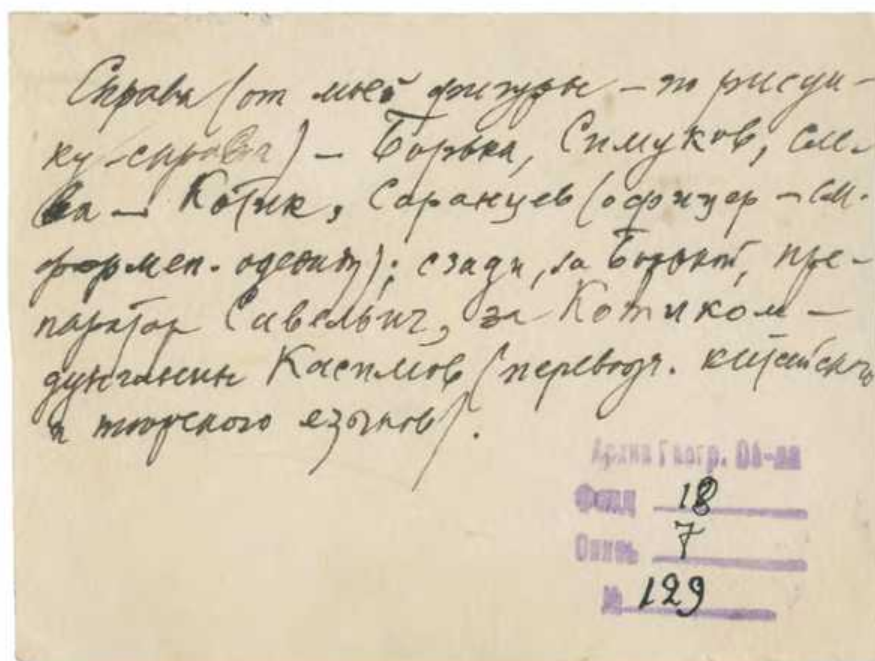 Справа (от моей фигуры – по рисун-
ку – справа) – Борька, Симуков, сле-
ва – Котик, Саранцев (офицер – см.
формен. одежду); сзади, за Борькой, пре-
паратор Савельич, за Котиком –
дунганин Касимов (переводч. китайского
и тюркского языков).
Архив Геогр. Об-ва
Фонд 18
Опись 7
№ 129